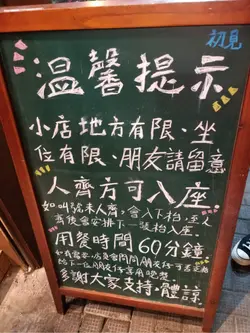 初見
溫馨提示
小店地方有限、坐
位有限、朋友請留意
人齊方可入座.
如叫號未人齊,會入下枱,至人
齊後會安排下一張枱入座.
用餐時間60分鐘
多謝大家支持、體諒